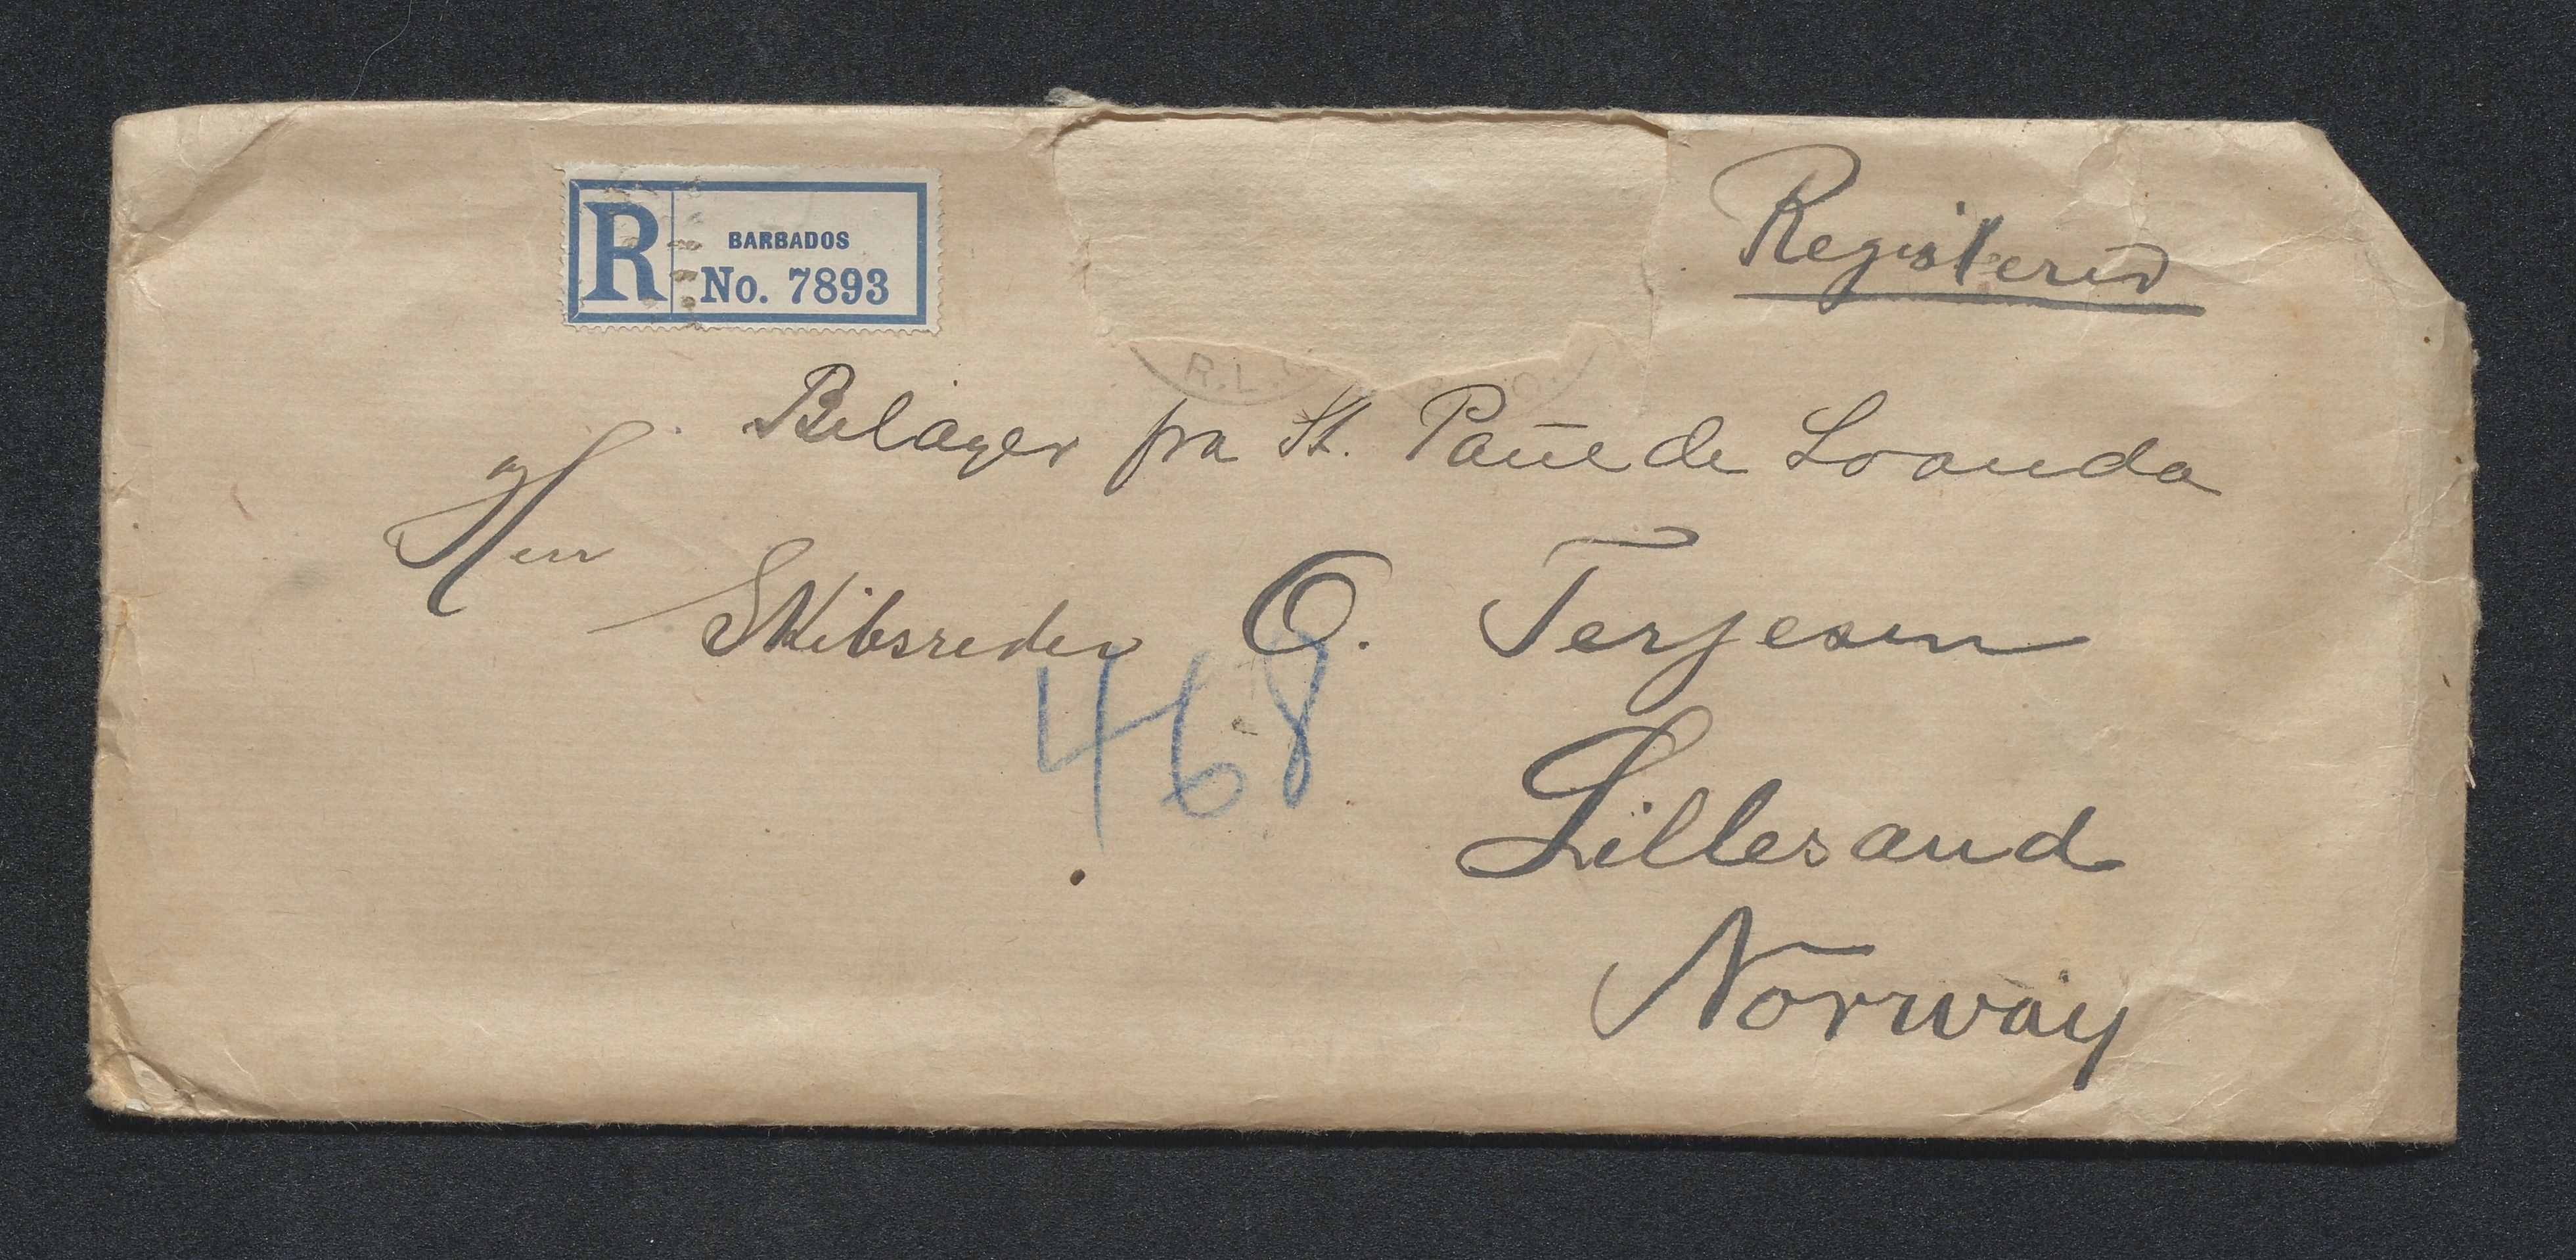 R BARBADOS
No. 7893
Registered
R.L.
Bilager fra St. Paul de Loanda
Herr
Skibsreder O. Terjesen
468
Lillesand
Norway